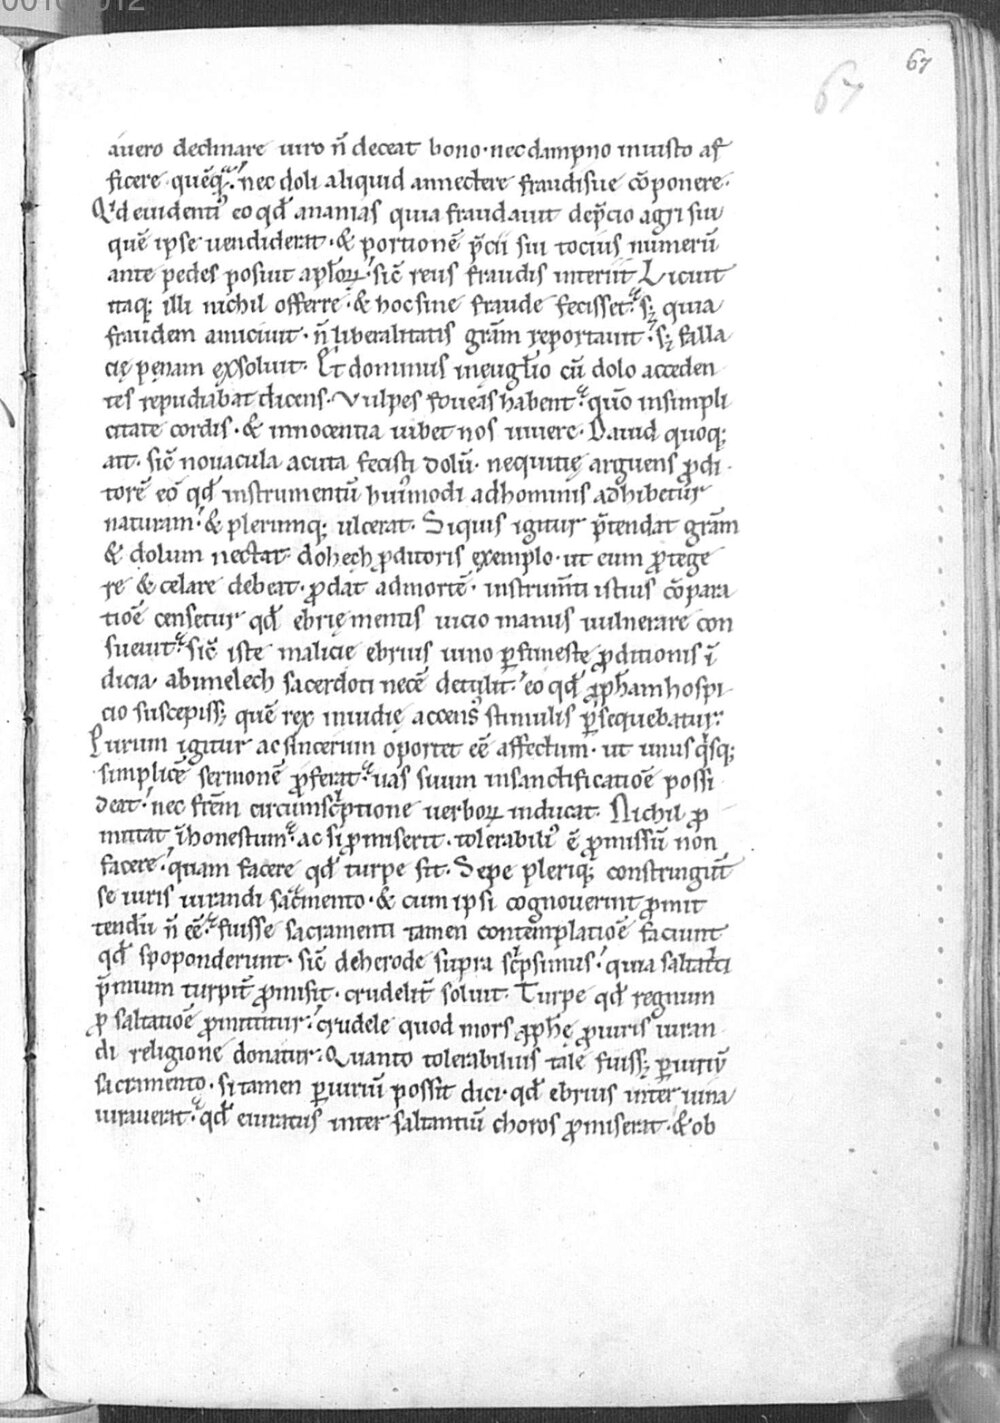 67
67
auero declinare uiro n̄ deceat bono· nec dampno iniusto af
ficere quēq̄ᵃ· nec doli aliquid annectere fraudisue cōponere·
Qⁱd euidentiꝰ eo qd̄ ananias quia fraudauit dep̄cio agri sui
quē ipse uendiderat· & portionē p̄cii sui tocius numerū
ante pedes posuit apl̄oꝝ· sic̄ reus fraudis interiit Licuit
itaq; illi nichil offerre· & hoc sine fraude fecisset· sꝫ quia
fraudem amiciuit· n̄ liberalitatis grām reportauit· sꝫ falla
cię pęnam exsoluit· Et dominus ineuglīo cū dolo acceden
tes repudiabat dicens· Vulpes foueas habent· quō insimpli
citate cordis· & innocentia uibet nos uiuere· Dauid quoq;
ait· sic̄ nouacula acuta fecisti dolū· nequitię arguens ꝓdi
torē eo qd̄ instrumentū huiꝰmodi adhominis adhibetur
naturam· & plerumq; ulcerat· Siquis igitur p̄tendat grām
& dolum nectat dohech ꝓditoris exemplo· ut eum ꝓtege
re & celare debeat· ꝓdat admortē· instrum̄ti istius cōpara
tioē censetur qd̄ ebrię mentis uicio manus uulnerare con
sueuit· sic̄ iste malicie ebrius uino ꝑfuneste ꝓditionis ī
dicia abimelech sacerdoti necē detulit· eo qd̄ ꝓph̄am hospi
cio suscepissꝫ quē rex inuidię accensꝰ stimulis ꝑsequebatur·
Purum igitur ac sincerum oportet eē affectum· ut unusqⁱsq;
simplicē sermonē ꝓferat· uas suum insanctificatioē possi
deat· nec fr̄em circumscⁱptione uerboꝝ inducat· Nichil ꝓ
mittat īhonestum· ac si ꝓmiserit· tolerabiliꝰ ē ꝓmissū non
facere· quam facere qd̄ turpe sit· Sepe pleriq; constringūt
se iuris iurandi sacᵃmento· & cum ipsi cognouerint ꝓmit
tendū n̄ eē· fuisse sacramenti tamen contemplatioē faciunt
qd̄ spoponderunt· sic̄ deherode supra scⁱpsimus· quia saltatⁱci
p̄mium turpit̄ ꝓmisit· crudelit̄ soluit· Turpe qd̄ regnum
ꝓ saltatioē ꝓmittitur· crudele quod mors ꝓph̄ę ꝓiuris iuran
di religione donatur· Quanto tolerabilius tale fuissꝫ ꝑiuriū
sacramento· si tamen ꝑiuriū possit dici· qd̄ ebrius inter uina
iurauerat· qd̄ euiratus inter saltantiū choros ꝓmiserat· & ob